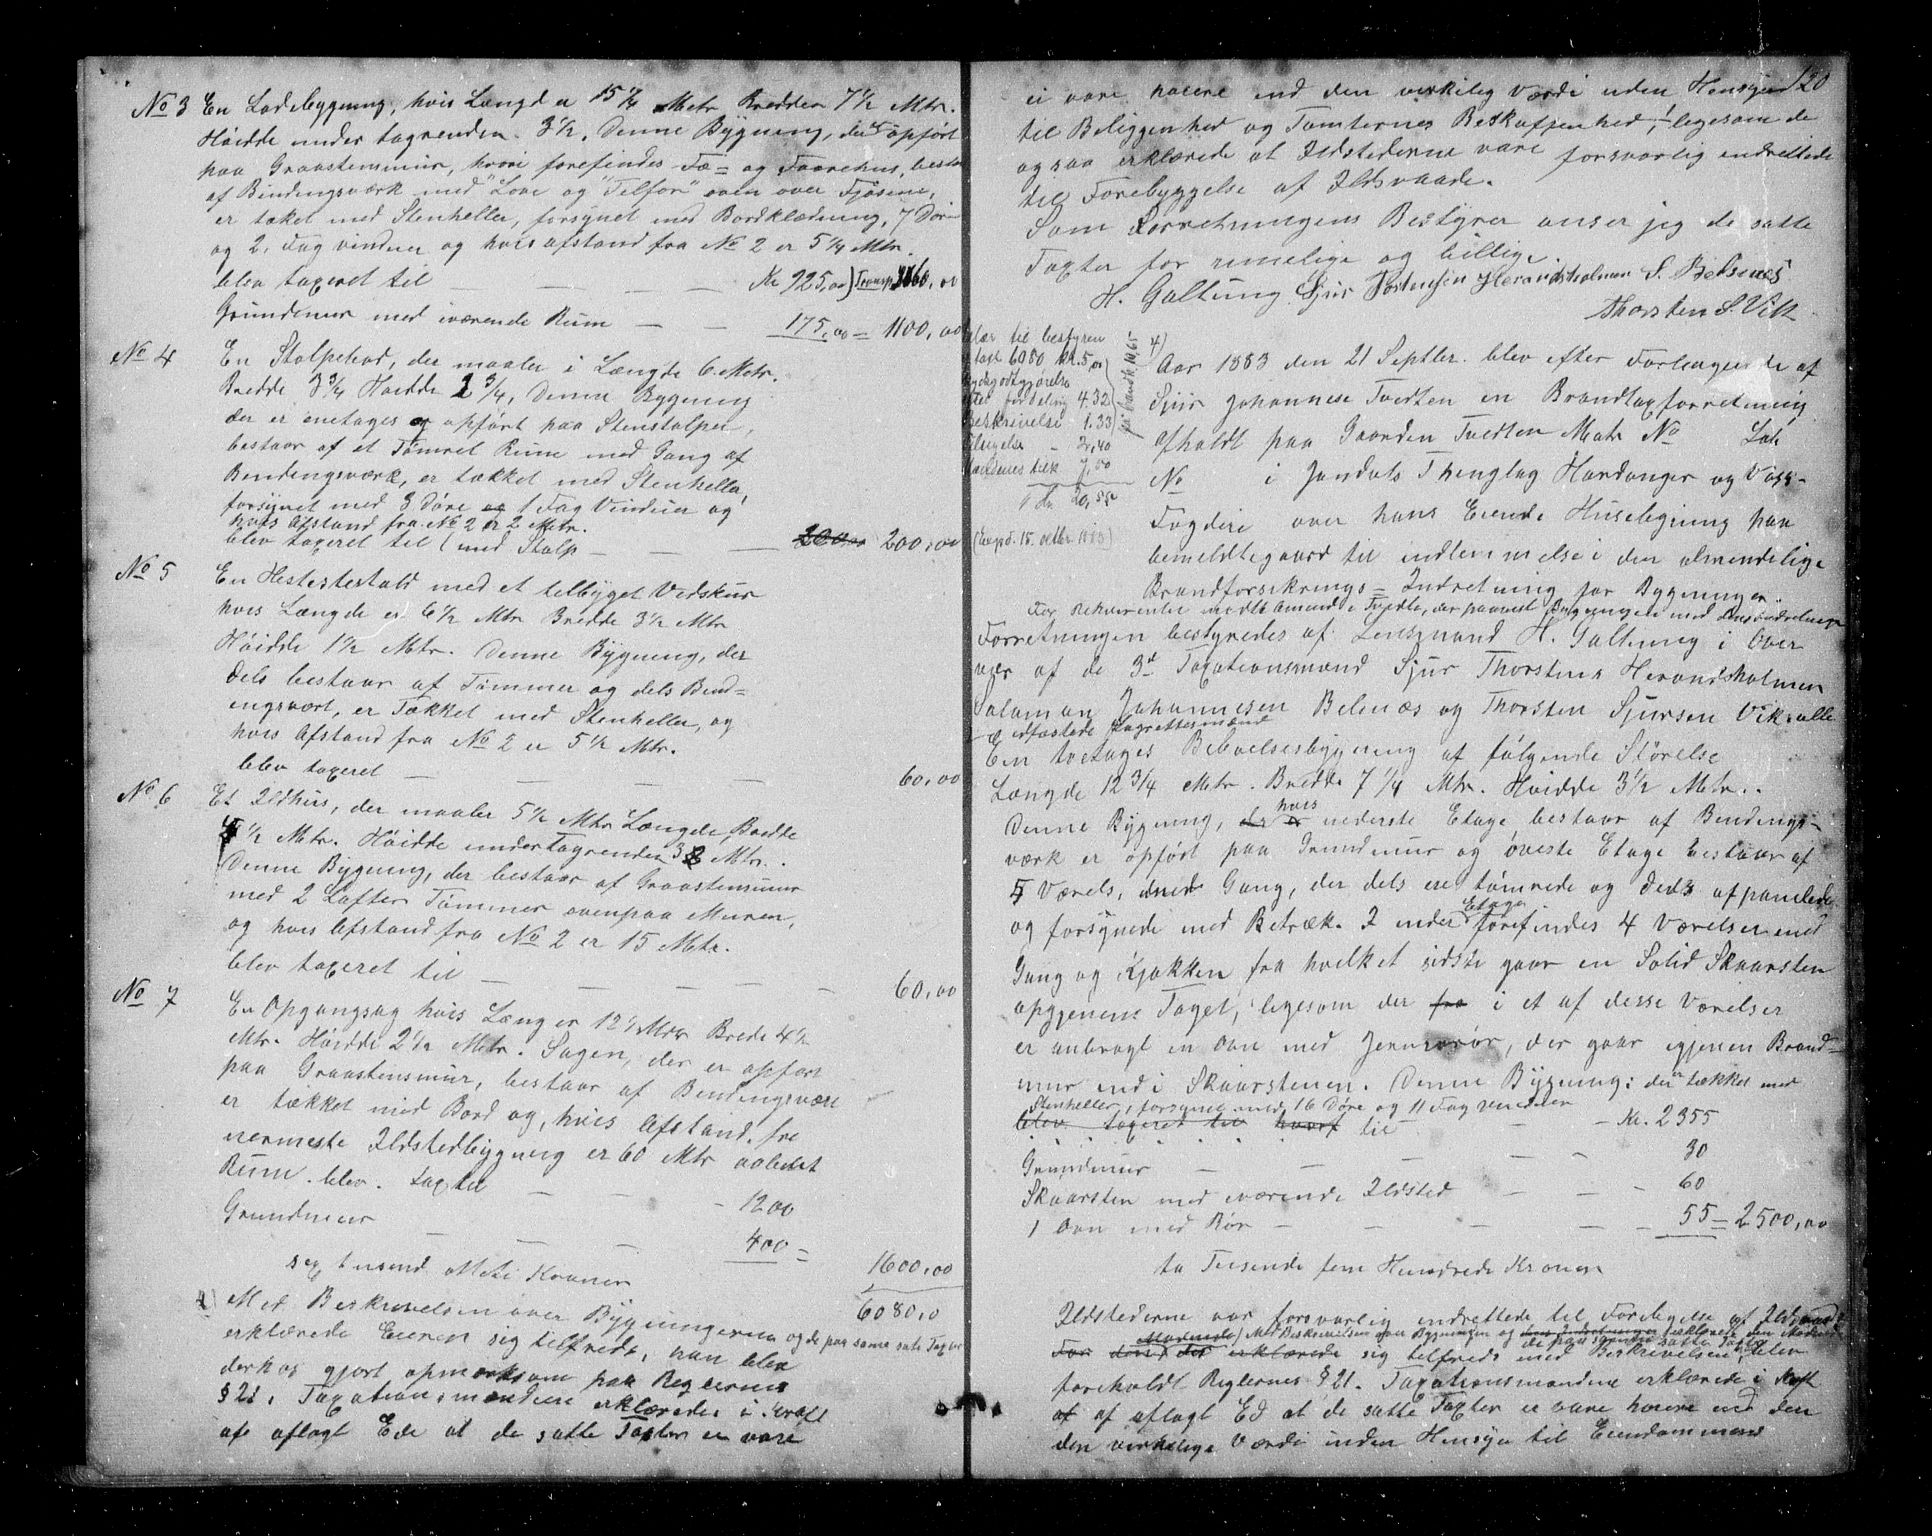 No 3 En Ladebygning, hvis Længde er 15 ¼ Metr Bredden 7 ½ Mtr.
Høidde under tagrenden. 3 ½. Denne Bygning, der er opført
paa Graastensmur, hvori forefindes Fæ= og Faarehus, bestaa
af Bindingsværk med "Love og "Telfor" oven over Fjøsene,
er tæket med Stenheller, forsynet med Bordklædning, 7 Døre
og 2. Fag vinduer og hvis afstand fra No 2 er 5 ¼ Mtr.
blev taxeret til — — — Kr 925,00) Transp 3160,00
Grundmur med iværende Rum — — 175,00 = 1100,00
No 4 En Stolpebod, der maaler i Længde 6 Metr.
Bredde 3 ¾ Høidde 2 ¾, Denne Bygning
der er enetages og opført paa Stenstolper,
bestaar af et Tømret Rum med Gang af
Bendingsværk, er tækket med Stenheller,
forsynet med 3 døre og 1 Fag Vinduer og
hvis Afstand fra No 2 er 2 Mtr.
blev taxeret til (med Stolp — — — 200,00 200,00
No 5 En Hestestald med et tilbyget Vedskur
hvis Længde er 6 ½ Mtr Bredde 3 ½ Mtr
Høidde 1 ½ Mtr. Denne Bygning, der
dels bestaar af Tømmer og dels Bind=
ingsvært, er Tækket med Stenheller, og
hvis Afstand fra No 2 er 5 ½ Mtr.
blev taxeret — — — — 60,00
No 6 Et Ildhus, der maaler 5 ½ Mtr Længde, Bredde
½ Mtr. Høidde under Tagrenden 3 Mtr.
Denne Bygning, der bestaar af Graastensmur
med 2 Lafter Tømmer ovenpaa Muren,
og hvis Afstand fra No 2 er 15 Metr.
blev taxeret til — — — — — 60,00
No 7 En Opgangsag hvis Læng er 12 ½ Mtr Brede 4 ½
Mtr. Høidde 2 ½ Metr. Sagen, der er opført
paa Graastensmur, bestaar af Bendingsvære
er tækket med Bord og, hvis Afstand fra
nermeste Ildstedbygning er 60 Mtr
Rum. blev. taxtil — — — 1200
Grundmur — — — 400 = 1600,00
sex tusend otteti Kroner 6080,0
Med Beskrivelsen over Bygningerne og de paa samme satte Taxter
erklærede Eieren sig tilfreds, han blev
derhos gjort opmerksom paa Reglernes
§ 21. Taxationsmændene erklærede i Kraft
af aflagt Ede at de satte Taxter er vare
130
ei vare høiere end den virkelig Værdi uden Hensyn
til Beliggenhed og Tomternes Beskaffenhed, ligesom de
ogsaa erklærede at Ildstederne vare forsvarlig indrettede
til Forebyggelse af Ildsvaade.
Som Forretningens Bestyrer anser jeg de satte
Taxter for rimelige og billige.
H. Galtung. Sjur Torstensen Herandsholmen S. Belsnes
Thorsten S. Vik
til bestyren
taxt 6080 kr. 5,00
fordeling 4.32
Beskrivelse 1.33
2,40
tilk 7,50
20,55
(Exped. 15. oktbr 1883)
4)
Aar 1883 den 21 Septbr. blev efter Forlangende af
Sjur Johannese Tvedten en Brandtaxforretning
afholdt paa Gaarden Tvedten Matr No Løb
No i Jondals Thinglag Hardanger og Voss-
Fogderi over hans Eiende Husebygning paa
bemeldte gaard til indlemmelse i den almindelige
Brandforsikrings= Indretning for Bygninger.
For Rekvirenten mødte Amund Tvedte, der paaviste Bygningen med dens indretninger
Forretningen bestyredes af Lensmand H. Galtung i Over
vær af de 3de Taxationsmænd Sjur Thorstens Herandsholmen
Salamon Johannesen Belsnæs og Thorsten Sjursen Vik alle
edfæstede Lagrettesmænd
En toetages Beboelsesbygning af følgende Størelse
Længde 12 ¾ Metr. Bredde 7 ¼ Mtr. Høidde 3 ½ Metr.
Denne Bygning, der er hvis nederste Etage bestaar af Bendings-
værk er opført paa Grundmur og øveste Etage bestaar af
5 Værels, med Gang, der dels ere tømrede og dels afpanelede
og forsynede med Betræk. I under Etage forefindes 4 Værelser med
Gang og Kjøkken fra hvilket sidste gaar en Solid Skaarsten
opgjenem Taget, ligesom der fra i et af desse Værelser
er anbragt en Ovn med Jernrør, der gaar igjenem Brand=
mur end i Skaarstenen. Denne Bygning: der er tækket med
Stenheller, forsynet med 16 Døre og 11 Fag vinduer
blev taxeret til hvorf til — — — Kr. 2355
Grundmur — — — — — 30
Skaarsten med iværende Ildsted — — — 60
1 Ovn med Rør — — — — — 55 = 2500,00
to Tusende fem Hundrede Kroner
Ildstederne var forsvarlig indrettede til Forebygelse af Ildsvaade
Mødende/ Med Beskrivelsen over Bygningen og de paa samme satte Taxter erklærede den Mødende
For dens det erklærede sig tilfreds med Beskrivelsen, blev
foreholdt Reglernes § 21. Taxationsmændene erklærede i Kraft
af af aflagt Ed at de satte Taxter ei vare høiere end den
den virkelige Værdi uden Hensyn til Eiendommens